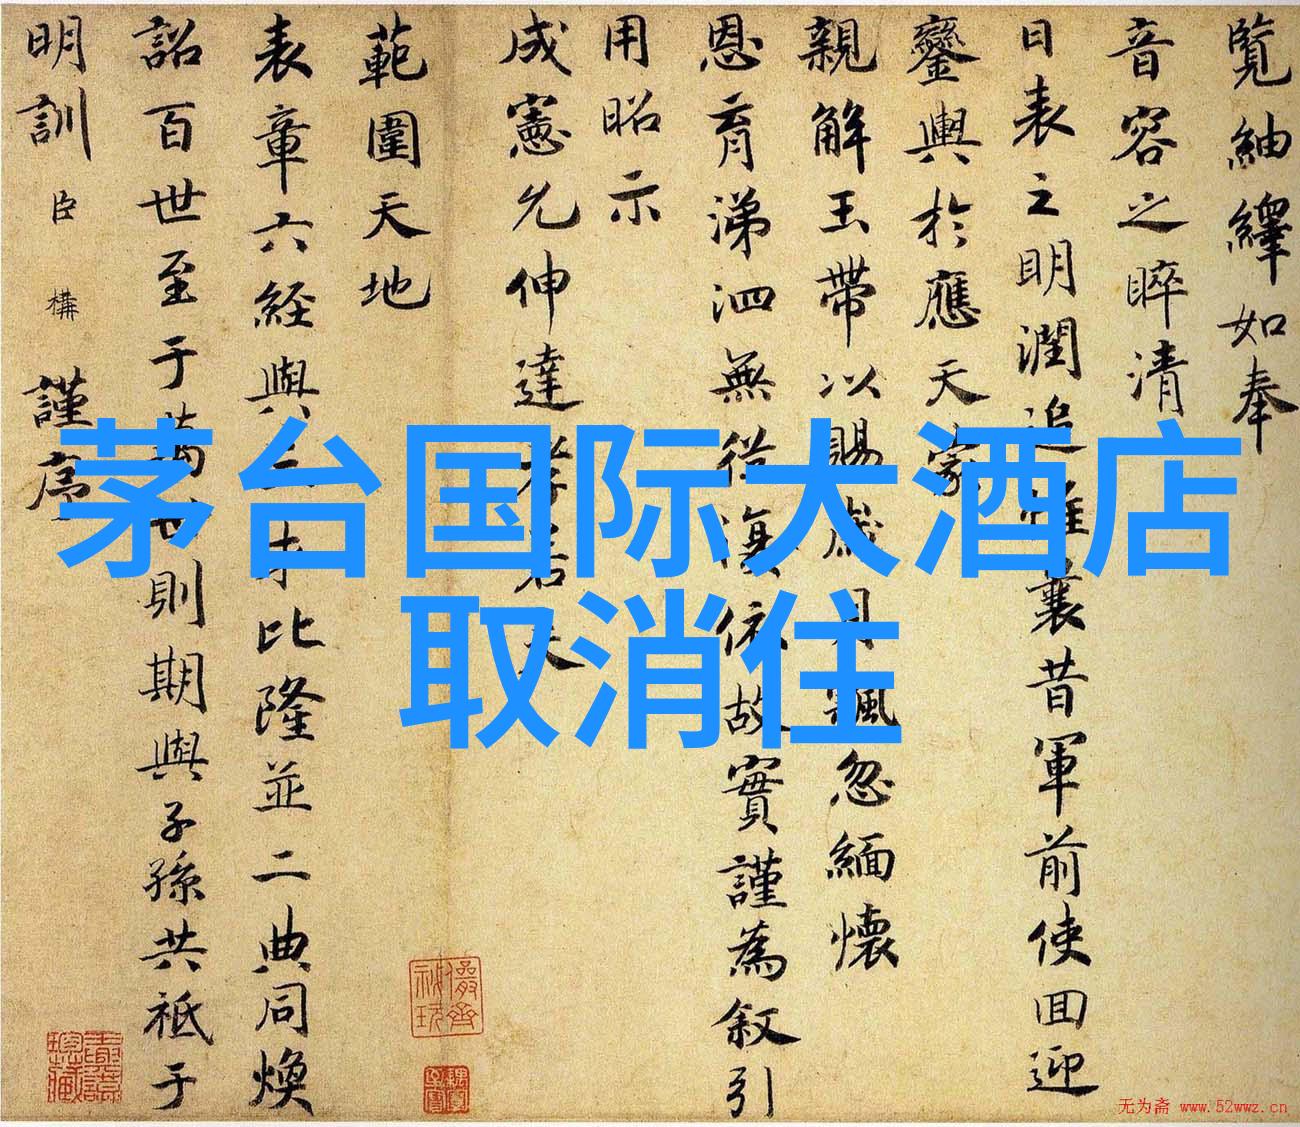 覽紬繹如奉
音容之睟清
日表之明潤追惟襄昔軍前使回迎
鑾輿於應天蒙
親解玉帶以賜歲月飄忽緬懷
恩育涕泗無從依故實謹為叙引
用昭示
成憲允伸達孝若夫
範圍天地
表章六経與三才比隆並二典同煥
詔百世至于萬世則期與子孫共祗于
明訓臣構謹序
茅台国际大酒店
取消住
无为斋 www.52wwz.cn